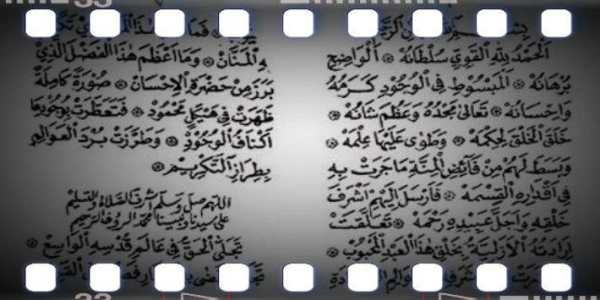 الْحَمْدُ لِلّٰهِ الْقَوِيِّ سُلْطَانُهُ ۞ الْوَاضِحِ
بُرْهَانُهُ ۞ الْمَبْسُوطِ فِي الْوُجُودِ كَرَمُهُ
وَاِحْسَانُهُ ۞ تَعَالَى مَجْدُهُ وَعَظُمَ شَانُهُ ۞
خَلَقَ الْخَلْقَ لِحِكْمَةٍ ۞ وَطَوَى عَلَيْهَا عِلْمَهُ ۞
وَبَسَطَ لَهُمْ مِنْ فَائِضِ الْمِنَّةِ مَا جَرَتْ بِهِ
فِي اَقْدَارِهِ الْقِسْمَةُ ۞ فَاَرْسَلَ اِلَيْهِمْ اَشْرَفَ
خَلْقِهِ وَاَجَلَّ عَبِيدِهِ رَحْمَةً ۞ تَعَلَّقَتْ
اِرَادَتُهُ الْاَزَلِيَّةُ بِخَلْقِ هٰذَا الْعَبْدِ الْمَحْبُوبِ ۞
بِهِ الْمَنَّانُ ۞ وَمَا اَعْظَمَ هٰذَا الْفَضْلَ الَّذِي
بَرَزَ مِنْ حَضْرَةِ الْاِحْسَانِ ۞ صُورَةٌ كَامِلَةٌ
ظَهَرَتْ فِي هَيْكَلٍ مَحْمُودٍ ۞ فَتَعَطَّرَتْ بِوُجُودِهَا
اَكْنَافُ الْوُجُودِ ۞ وَطَرَّزَتْ بُرْدَ الْعَوَالِمِ
بِطِرَازِ التَّكْرِيمِ ۞
اللهم صل وسلم اشرف الصلاة والتسليم
على سيدنا ونبينا محمد الرؤف الرحيم
تَجَلَّى الْحَقُّ فِي عَالَمِ قُدْسِهِ الْوَاسِعِ ۞
33